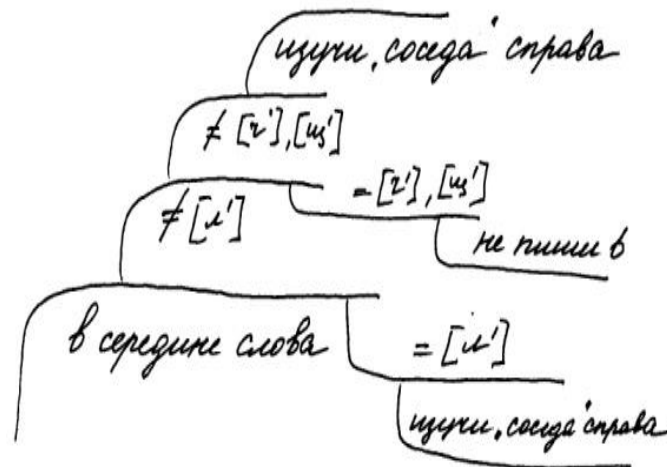 изучи „соседа“ справа
≠ [ч'], [щ']
= [ч'], [щ']
≠ [л']
не пиши ь
в середине слова
= [л']
изучи „соседа“ справа